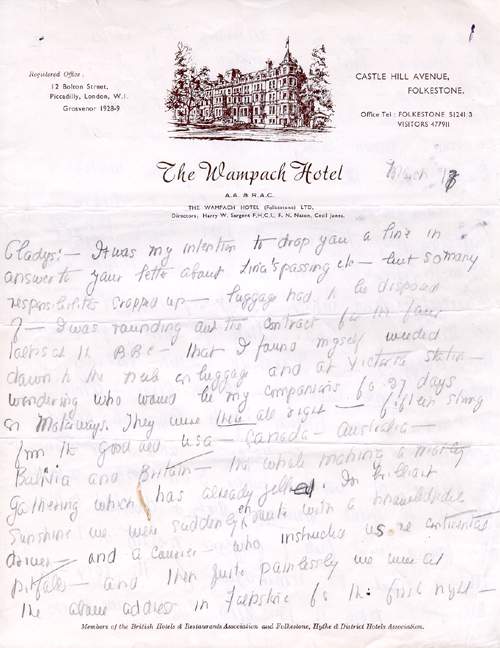 Registered Office:
12 Bolton Street,
Piccadilly, London, W.1.
Grosvenor 1928-9
CASTLE HILL AVENUE,
FOLKESTONE.
Office Tel: FOLKESTONE 51241-3
VISITORS 477911
The Wampach Hotel
A.A. & R.A.C.
THE WAMPACH HOTEL (Folkestone) LTD,
Directors, Harry W. Sergent F.H.C.I., F. N. Nixon, Cecil Jones.
March
Gladys:— It was my intention to drop you a line in
answer to your letter about passing etc — but so many
responsibilities cropped up — luggage had to be disposed
of — I was rounding out the contract for the four
at the BBC — that I found myself weeded
down to the on luggage and at Victoria station
wondering who would be my companions for 27 days
on Motorways. They were all right — fifteen strong
from the good old USA — Canada — Australia —
and Britain — the whole making a
gathering which has already jelled. In brilliant
sunshine we were suddenly en route with a
driver — and a courier — who instructed us re continental
pitfalls — and then quite painlessly we were at
the above address in for the first night —
Members of the British Hotels & Restaurants Association and Folkestone, Hythe & District Hotels Association.